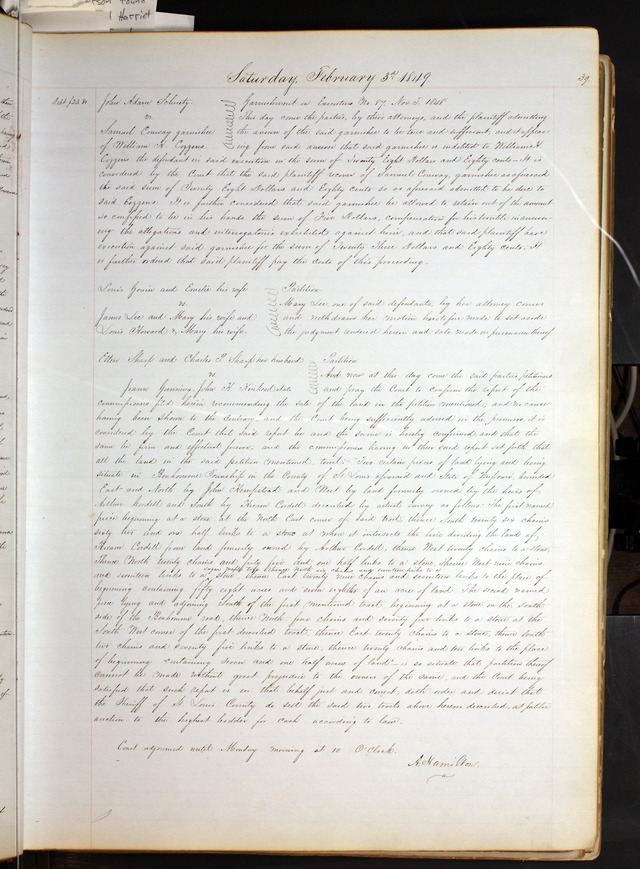 Harriet
Saturday, February 3d 1849
39
John Adam Schuetz
vs
Samuel Conway garnishee
of William H. Cozzens
Garnishment on Execution No. 87. Nov. T. 1848
This day come the parties, by their attorneys, and the plaintiff admitting
the answer of the said garnishee to be true and sufficient, and it appear-
ing from said answer that said garnishee is indebted to William H.
Cozzens the defendant in said execution in the sum of Twenty Eight Dollars and Eighty cents. It is
considered by the Court that the said plaintiff recover of Samuel Conway, garnishee as aforesaid
the said sum of Twenty Eight Dollars and Eighty cents so as aforesaid admitted to be due to
said Cozzens. It is further considered that said garnishee be allowed to retain out of the amount
so confessed to be in his hands the sum of Five Dollars, compensation for his trouble in answer-
ing the allegations and interrogatories exhibited against him, and that said plaintiff have
execution against said garnishee for the sum of Twenty Three Dollars and Eighty cents. It
is further ordered that said plaintiff pay the costs of this proceeding.
Louis and Emelie his wife
vs.
James Lee and Mary his wife and
Louis Howard & Mary his wife.
Partition
Mary Lee one of said defendants, by her attorney comes
and withdraws her motion heretofore made to set aside
the judgment rendered herein and sale made in pursuance thereof
Ellen Sharp and Charles P. Sharp her husband
vs
Partition
And now at this day come the said parties petitioners
and pray the Court to confirm the report of the
commissioners filed herein recommending the sale of the land in the petition mentioned, and no cause
having been shown to the contrary and the Court being sufficiently advised in the premises, it is
considered by the Court that said report be and the same is hereby confirmed and that the
same be firm and effectual forever, and the commissioners having in their said report set forth that
all the land in the said petition mentioned, towit: Two certain pieces of land lying and being
situate in Bonhomme Township in the County of St Louis aforesaid and State of Missouri, bounded
East and North by John Hempstead and West by land formerly owned by the heirs of
Arthur Cordell and South by Hiram Cordell described by actual survey as follows. The first named
piece beginning at a stone at the North East corner of said tract, thence South twenty six chains
sixty two and one half links to a stone at where it intersects the line dividing the land of
Hiram Cordell from land formerly owned by Arthur Cordell, thence West twenty chains to a stone,
Thence North twenty chains and fifty five and one half links to a stone, thence West nine chains
and seventeen links to a stone, thence North six chains and seventeen links to a
stone thence East twenty nine chains and seventeen links to the place of
beginning containing fifty eight acres and seven eighths of an acre of land. The second named
piece lying and adjoining South of the first mentioned tract, beginning at a stone on the South
side of the Bonhomme road, thence North five chains and seventy five links to a stone at the
South West corner of the first described tract, thence East twenty chains to a stone, thence South
two chains and seventy five links to a stone, thence twenty chains and two links to the place
of beginning containing seven and one half acres of land - is so situate that partition thereof
cannot be made without great prejudice to the owners of the same, and the Court being
satisfied that such report is in that behalf just and correct, doth order and direct that
the Sheriff of St Louis County do sell the said two tracts above herein described, at public
auction to the highest bidder for cash according to law.
Court adjourned until Monday morning at 10 O'Clock.
A. Hamilton.